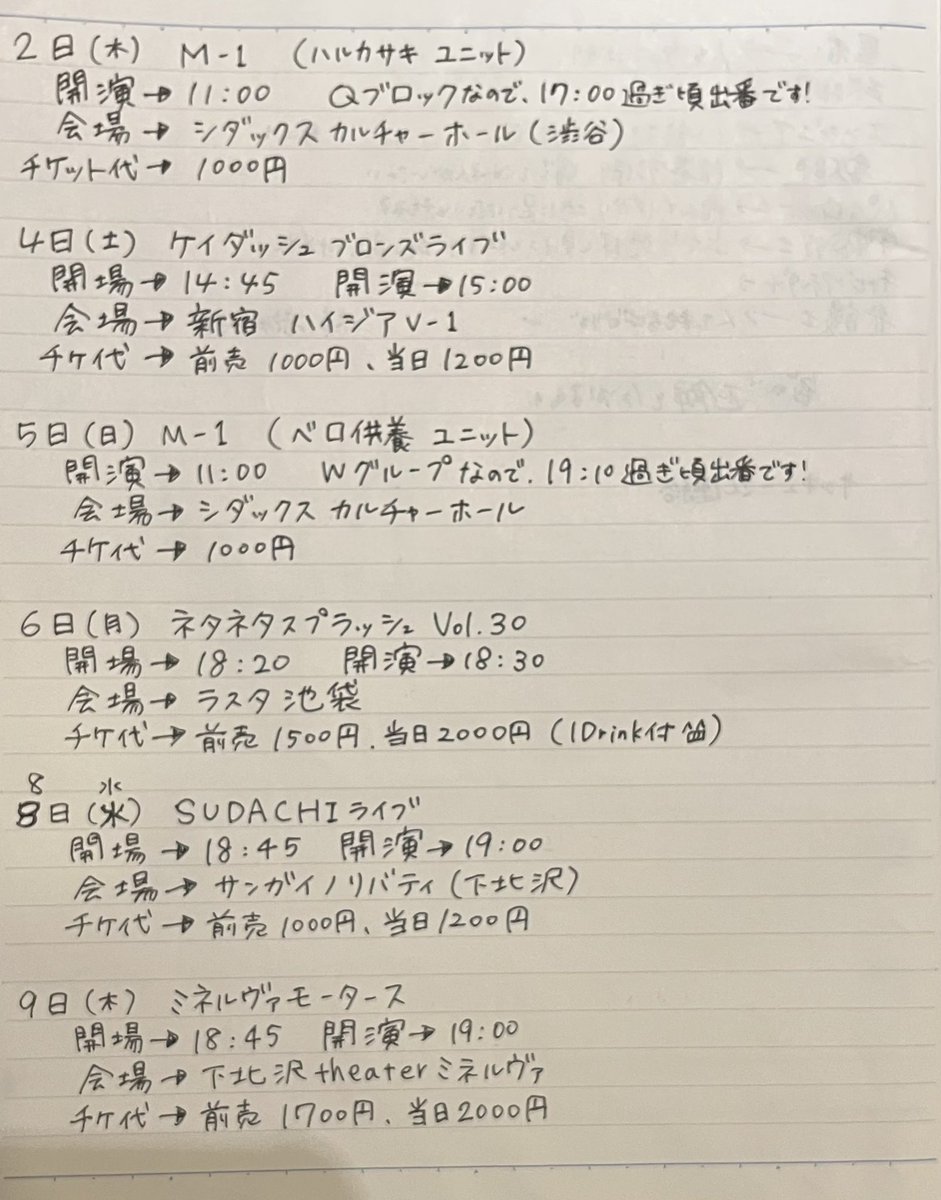 2日(木) M-1 (ハルカサキ ユニット)
開演→11:00 Qブロックなので、17:00過ぎ頃出番です!
会場→シダックスカルチャーホール(渋谷)
チケット代→1000円
4日(土) ケイダッシュブロンズライブ
開場→14:45 開演→15:00
会場→新宿 ハイジアV-1
チケ代→前売1000円、当日1200円
5日(日) M-1 (ベロ供養 ユニット)
開演→11:00 Wグループなので、19:10過ぎ頃出番です!
会場→シダックス カルチャーホール
チケ代→1000円
6日(月) ネタネタスプラッシュ Vol.30
開場→18:20 開演→18:30
会場→ラスタ池袋
チケ代→前売1500円、当日2000円 (1Drink付
8 水
8日(水) SUDACHIライブ
開場→18:45 開演→19:00
会場→サンガイノリバティ(下北沢)
チケ代→前売1000円、当日1200円
9日(木) ミネルヴァモータース
開場→18:45 開演→19:00
会場→下北沢theaterミネルヴァ
チケ代→前売1700円、当日2000円